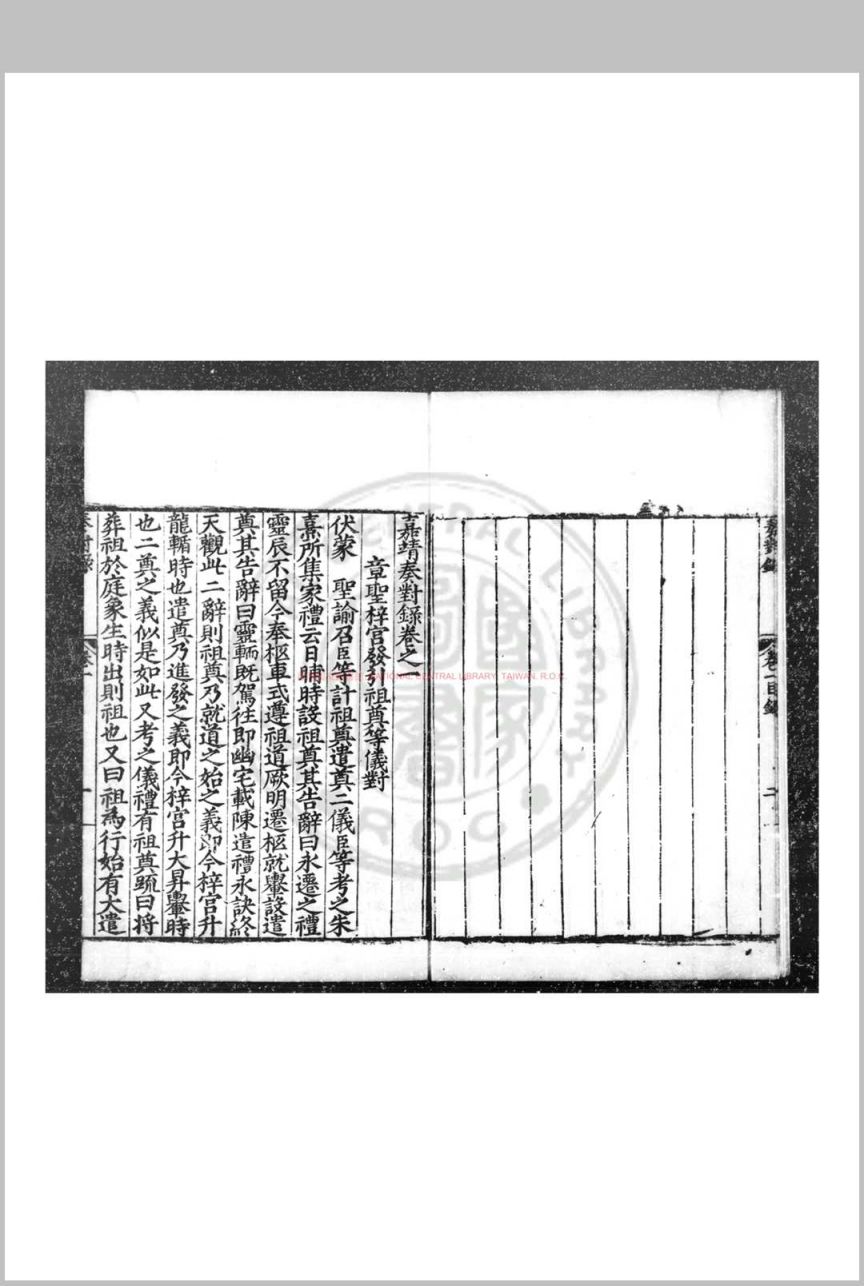 嘉對錄
卷一目錄
二
嘉靖奏對錄卷之一
章聖梓宮發引祖奠等儀對
伏蒙 聖諭召臣等計祖奠遣奠二儀臣等考之朱
熹所集家禮云日晡時設祖奠其告辭曰永遷之禮
靈辰不留今奉柩車式遵祖道厥明遷柩就轝設遣
奠其告辭曰靈輀既駕往即幽宅載陳遣禮永訣終
天觀此二辭則祖奠乃就道之始之義即今梓宮升
龍輴時也遣奠乃進發之義即今梓宮升大昇轝時
也二奠之義似是如此又考之儀禮有祖奠䟽曰将
葬祖於庭象生時出則祖也又曰祖為行始有大遣
奏對錄
卷一
一
NATIONAL CENTRAL LIBRARY, TAIWAN. R.O.C
CENTRAL LIBRARY
ROC